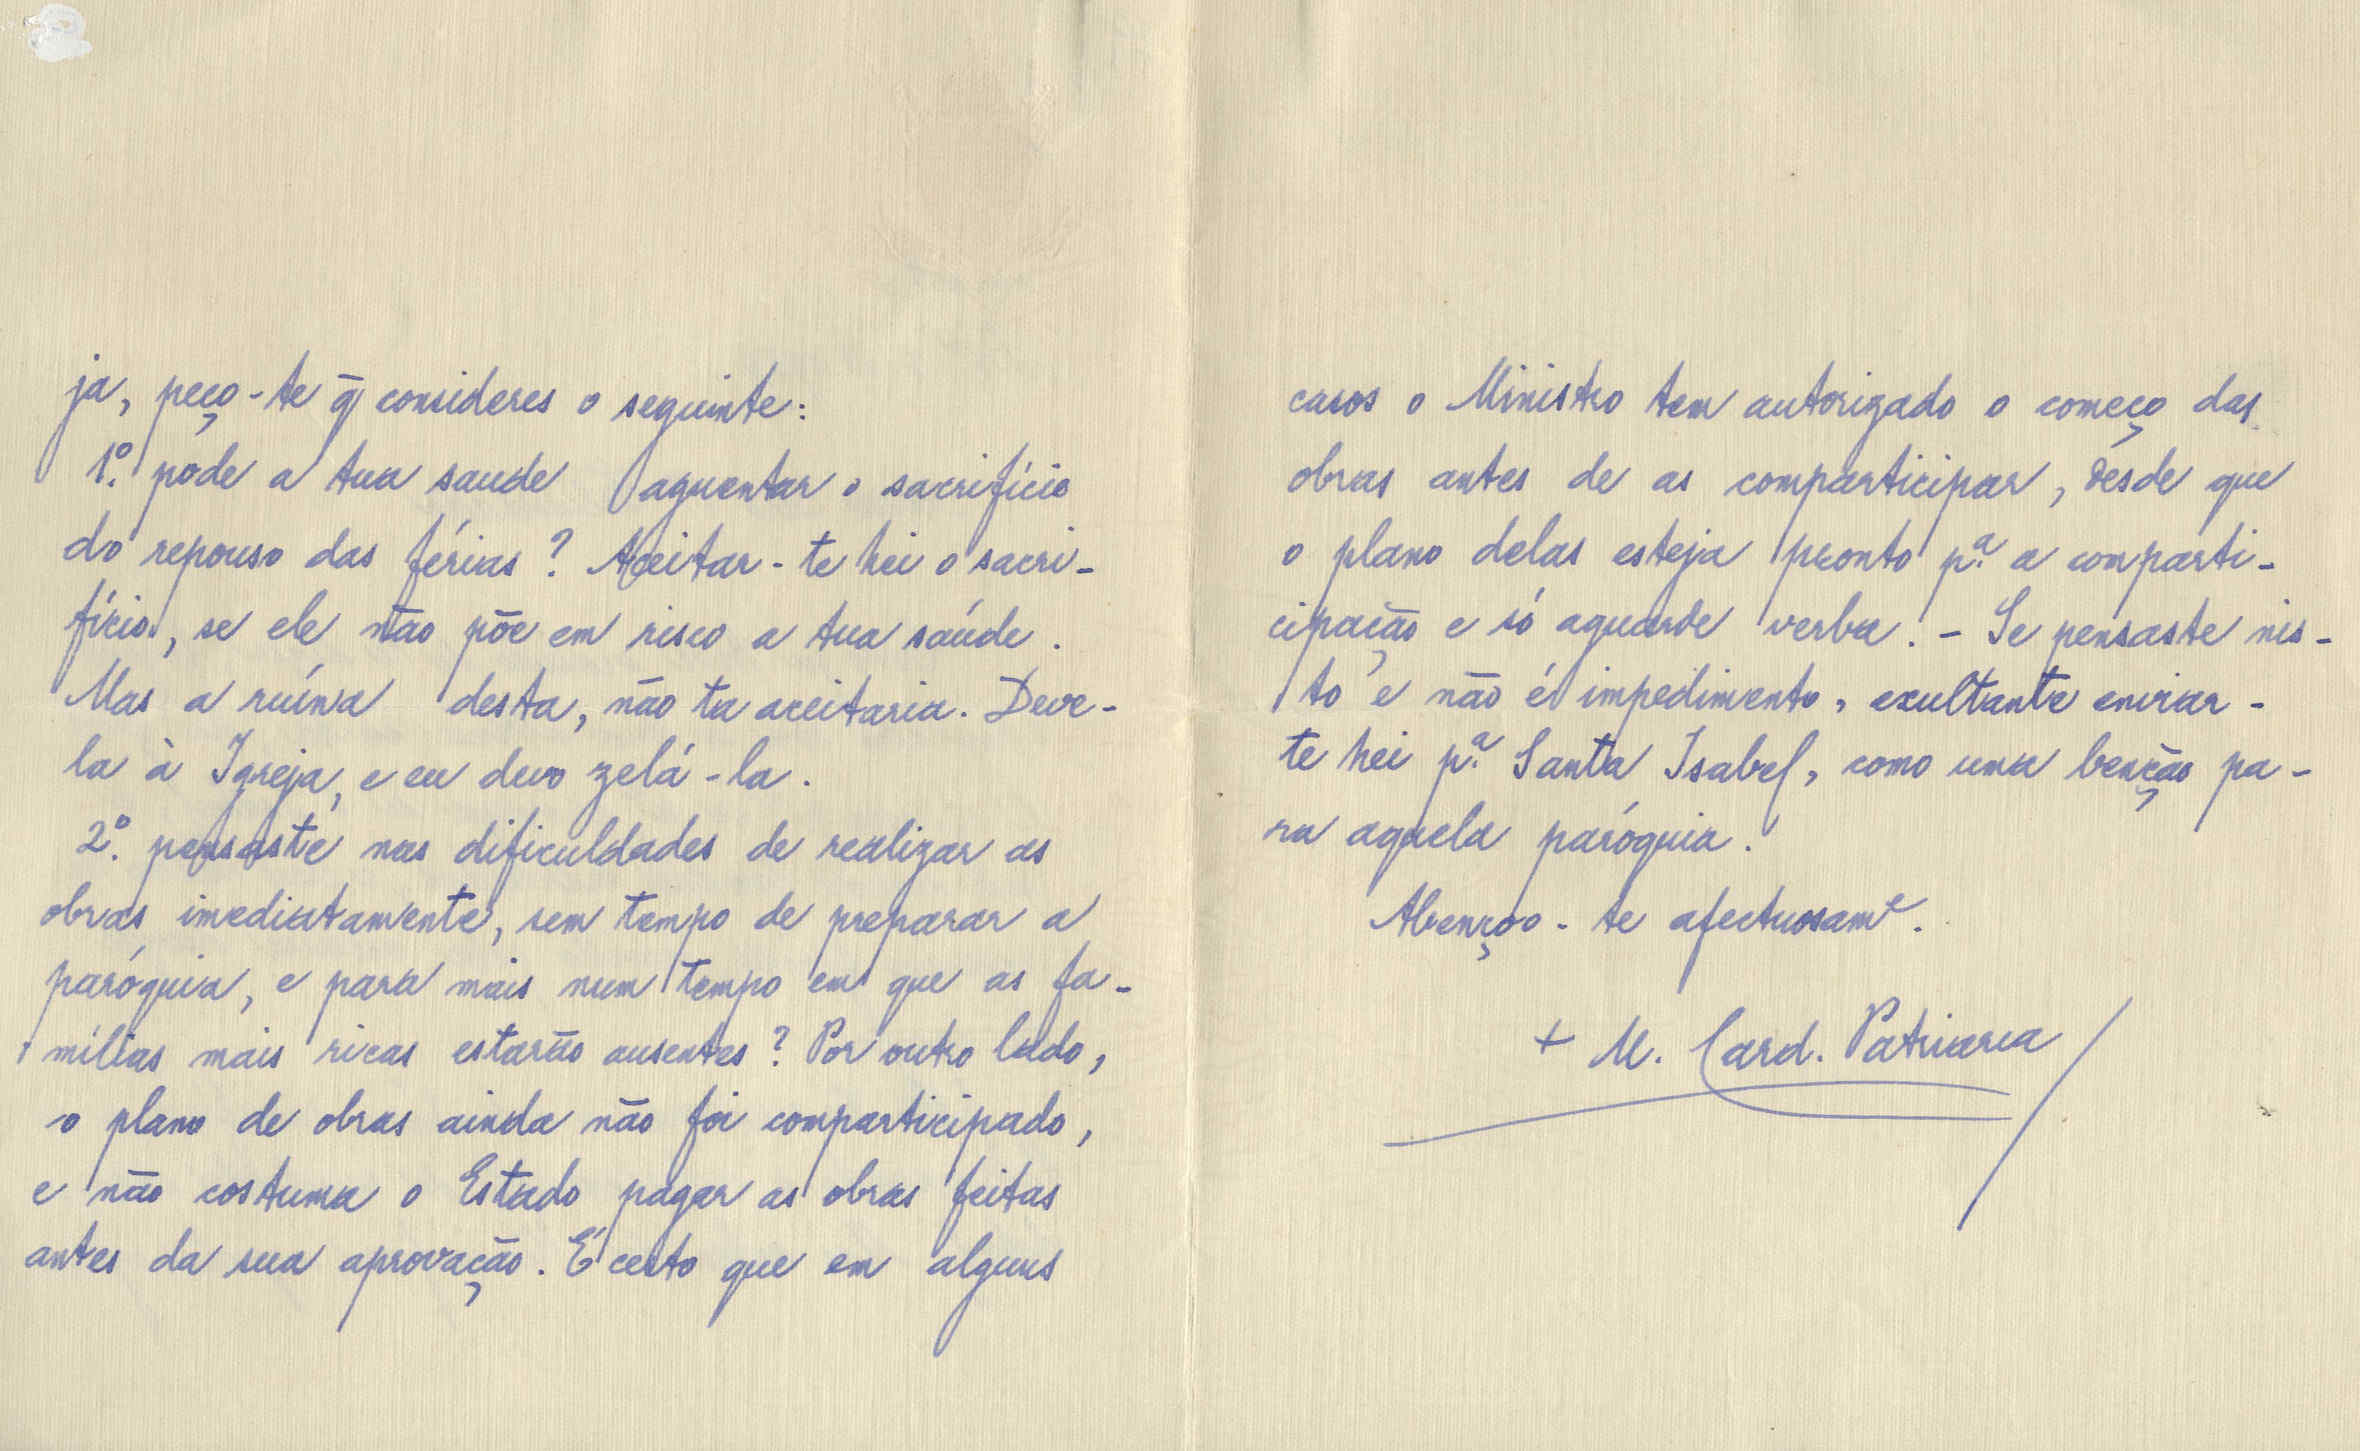 ja, peço-te q̃ consideres o seguinte:
1º. pode a tua saude aguentar o sacrifício
do repouso das férias? Aceitar-te hei o sacri-
fício, se ele não põe em risco a tua saúde.
Mas a ruína desta, não ta aceitaria. Deve-
la à Igreja, e eu devo zelá-la.
2º. pensaste nas dificuldades de realizar as
obras imediatamente, sem tempo de preparar a
paróquia, e para mais num tempo em que as fa-
mílias mais ricas estarão ausentes? Por outro lado,
o plano de obras ainda não foi comparticipado,
e não costuma o Estado pagar as obras feitas
antes da sua aprovação. É certo que em alguns
casos o Ministro tem autorizado o começo das
obras antes de as comparticipar, desde que
o plano delas esteja pronto pª. a comparti-
cipação e só aguarde verba. - Se pensaste nis-
to e não é impedimento, exultante enviar-
te hei pª. Santa Isabel, como uma benção pa-
ra aquela paróquia.
Abençoo-te afectuosamᵉ.
+ M. Card. Patriarca